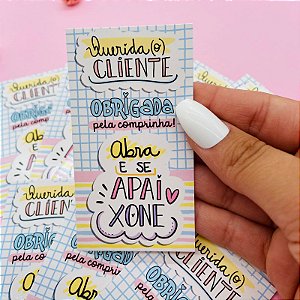 Querida(o)
CLIENTE
OBRIGADA
pela comprinha!
Abra
E SE
APAI
XONE
Querida
CLIEN
OBRIG
pela compri
Abra
Querida
CLIEN
OBRIGA
pela compri
Abr